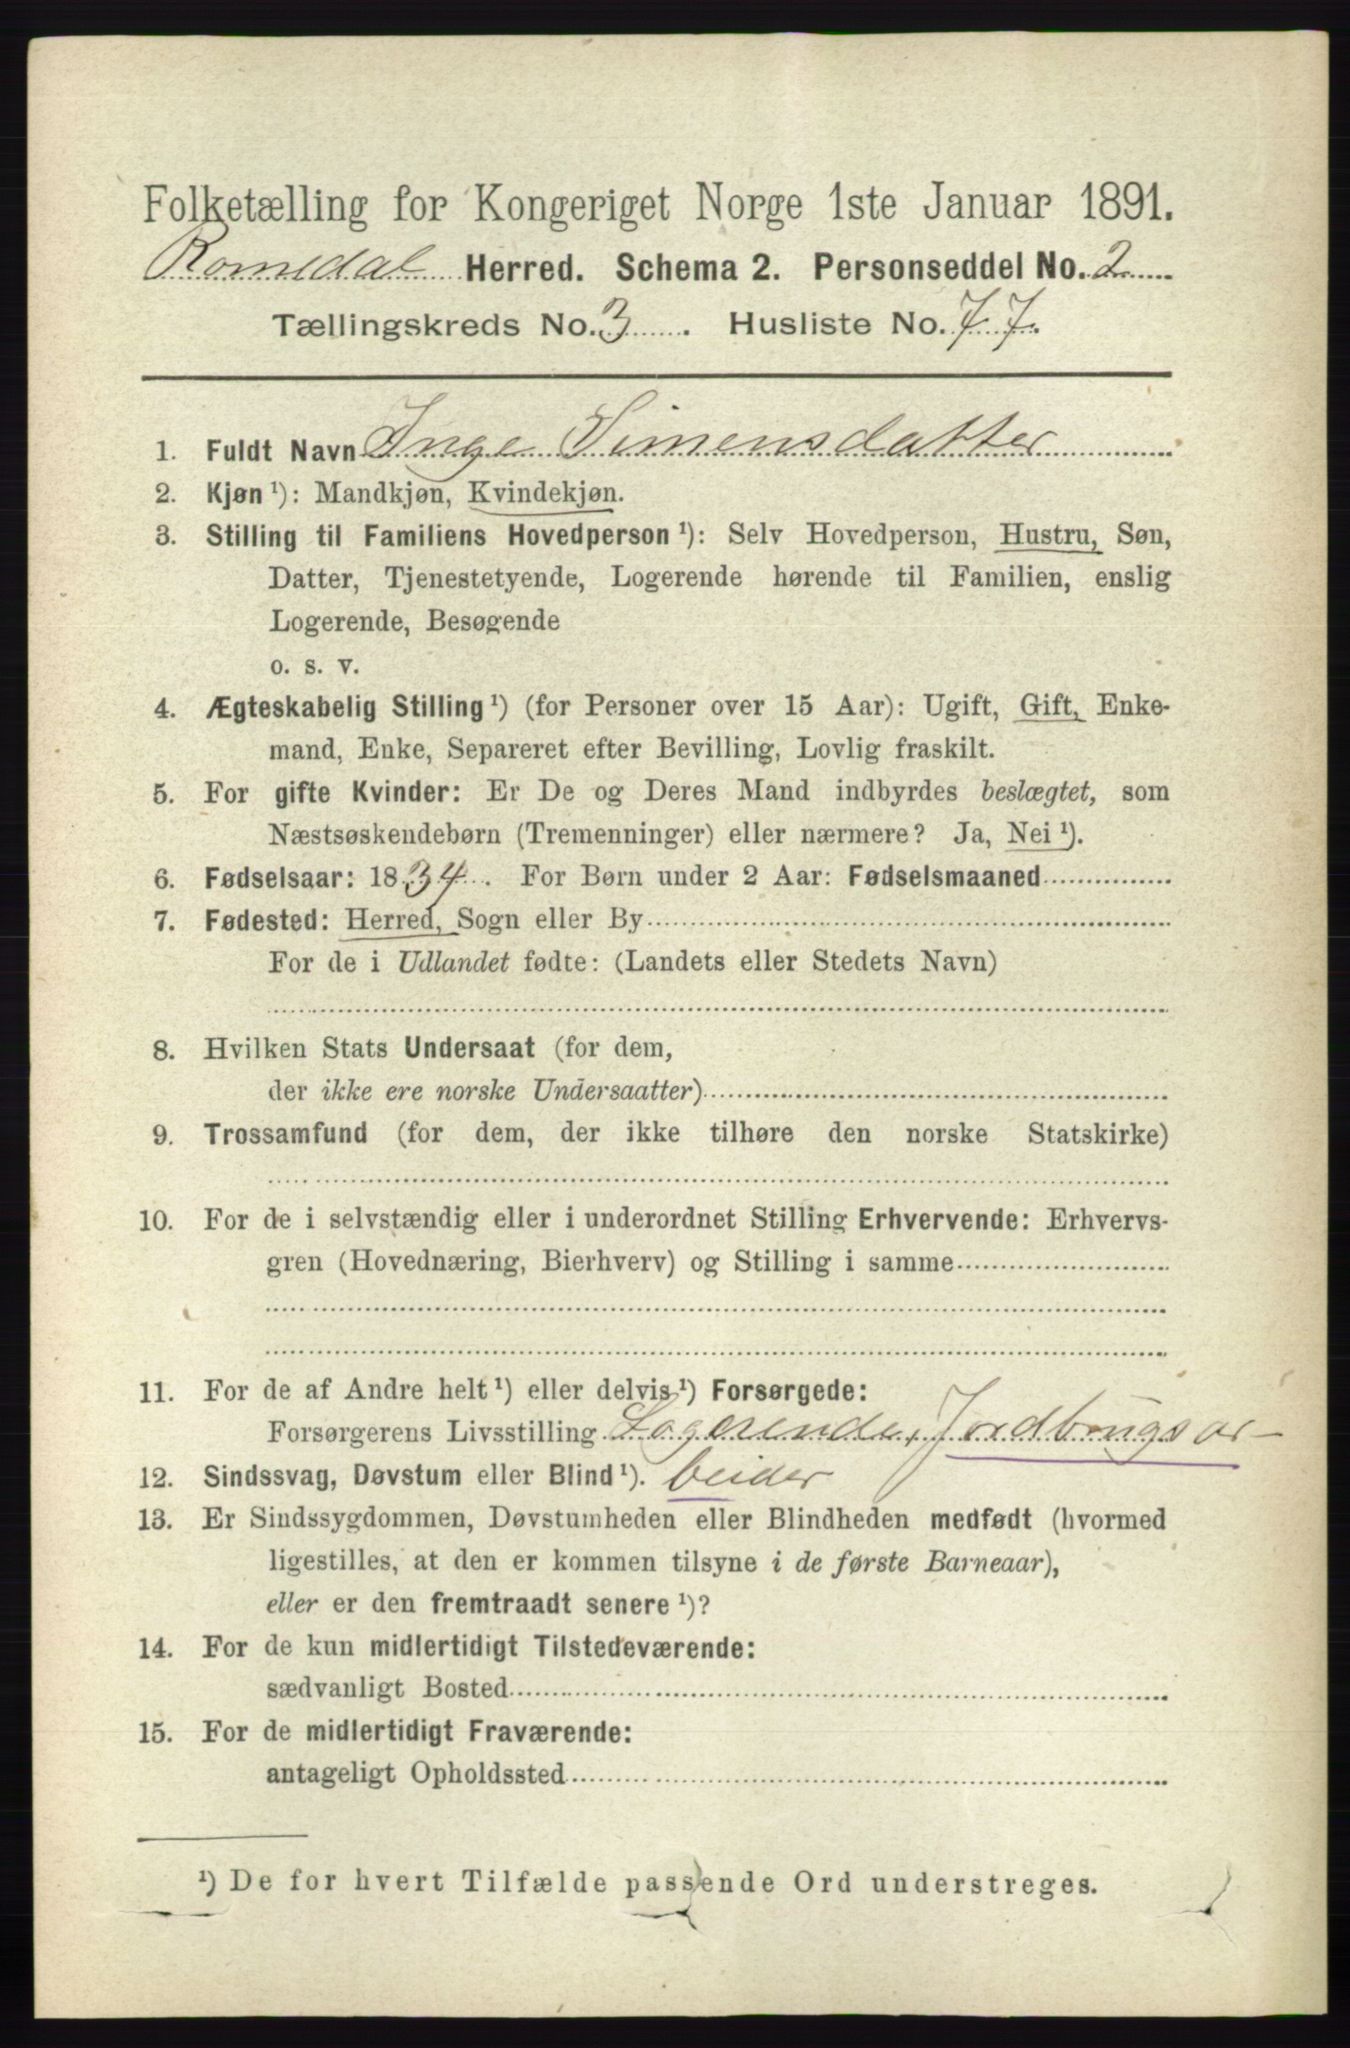 Folketælling for Kongeriget Norge 1ste Januar 1891.
Romedal Herred. Schema 2. Personseddel No. 2
Tællingskreds No. 3. Husliste No. 77.
1. Fuldt Navn Inge Simensdatter
2. Kjøn ¹): Mandkjøn, Kvindekjøn.
3. Stilling til Familiens Hovedperson ¹): Selv Hovedperson, Hustru, Søn,
Datter, Tjenestetyende, Logerende hørende til Familien, enslig
Logerende, Besøgende
o. s. v.
4. Ægteskabelig Stilling ¹) (for Personer over 15 Aar): Ugift, Gift, Enke-
mand, Enke, Separeret efter Bevilling, Lovlig fraskilt.
5. For gifte Kvinder: Er De og Deres Mand indbyrdes beslægtet, som
Næstsøskendebørn (Tremenninger) eller nærmere? Ja, Nei ¹).
6. Fødselsaar: 1834. For Børn under 2 Aar: Fødselsmaaned
7. Fødested: Herred, Sogn eller By
For de i Udlandet fødte: (Landets eller Stedets Navn)
8. Hvilken Stats Undersaat (for dem,
der ikke ere norske Undersaatter)
9. Trossamfund (for dem, der ikke tilhøre den norske Statskirke)
10. For de i selvstændig eller i underordnet Stilling Erhvervende: Erhvervs-
gren (Hovednæring, Bierhverv) og Stilling i samme
11. For de af Andre helt ¹) eller delvis ¹) Forsørgede:
Forsørgerens Livsstilling Logerende, Jordbrugsar-
12. Sindssvag, Døvstum eller Blind ¹). beider
13. Er Sindssygdommen, Døvstumheden eller Blindheden medfødt (hvormed
ligestilles, at den er kommen tilsyne i de første Barneaar),
eller er den fremtraadt senere ¹)?
14. For de kun midlertidigt Tilstedeværende:
sædvanligt Bosted
15. For de midlertidigt Fraværende:
antageligt Opholdssted
¹) De for hvert Tilfælde passende Ord understreges.